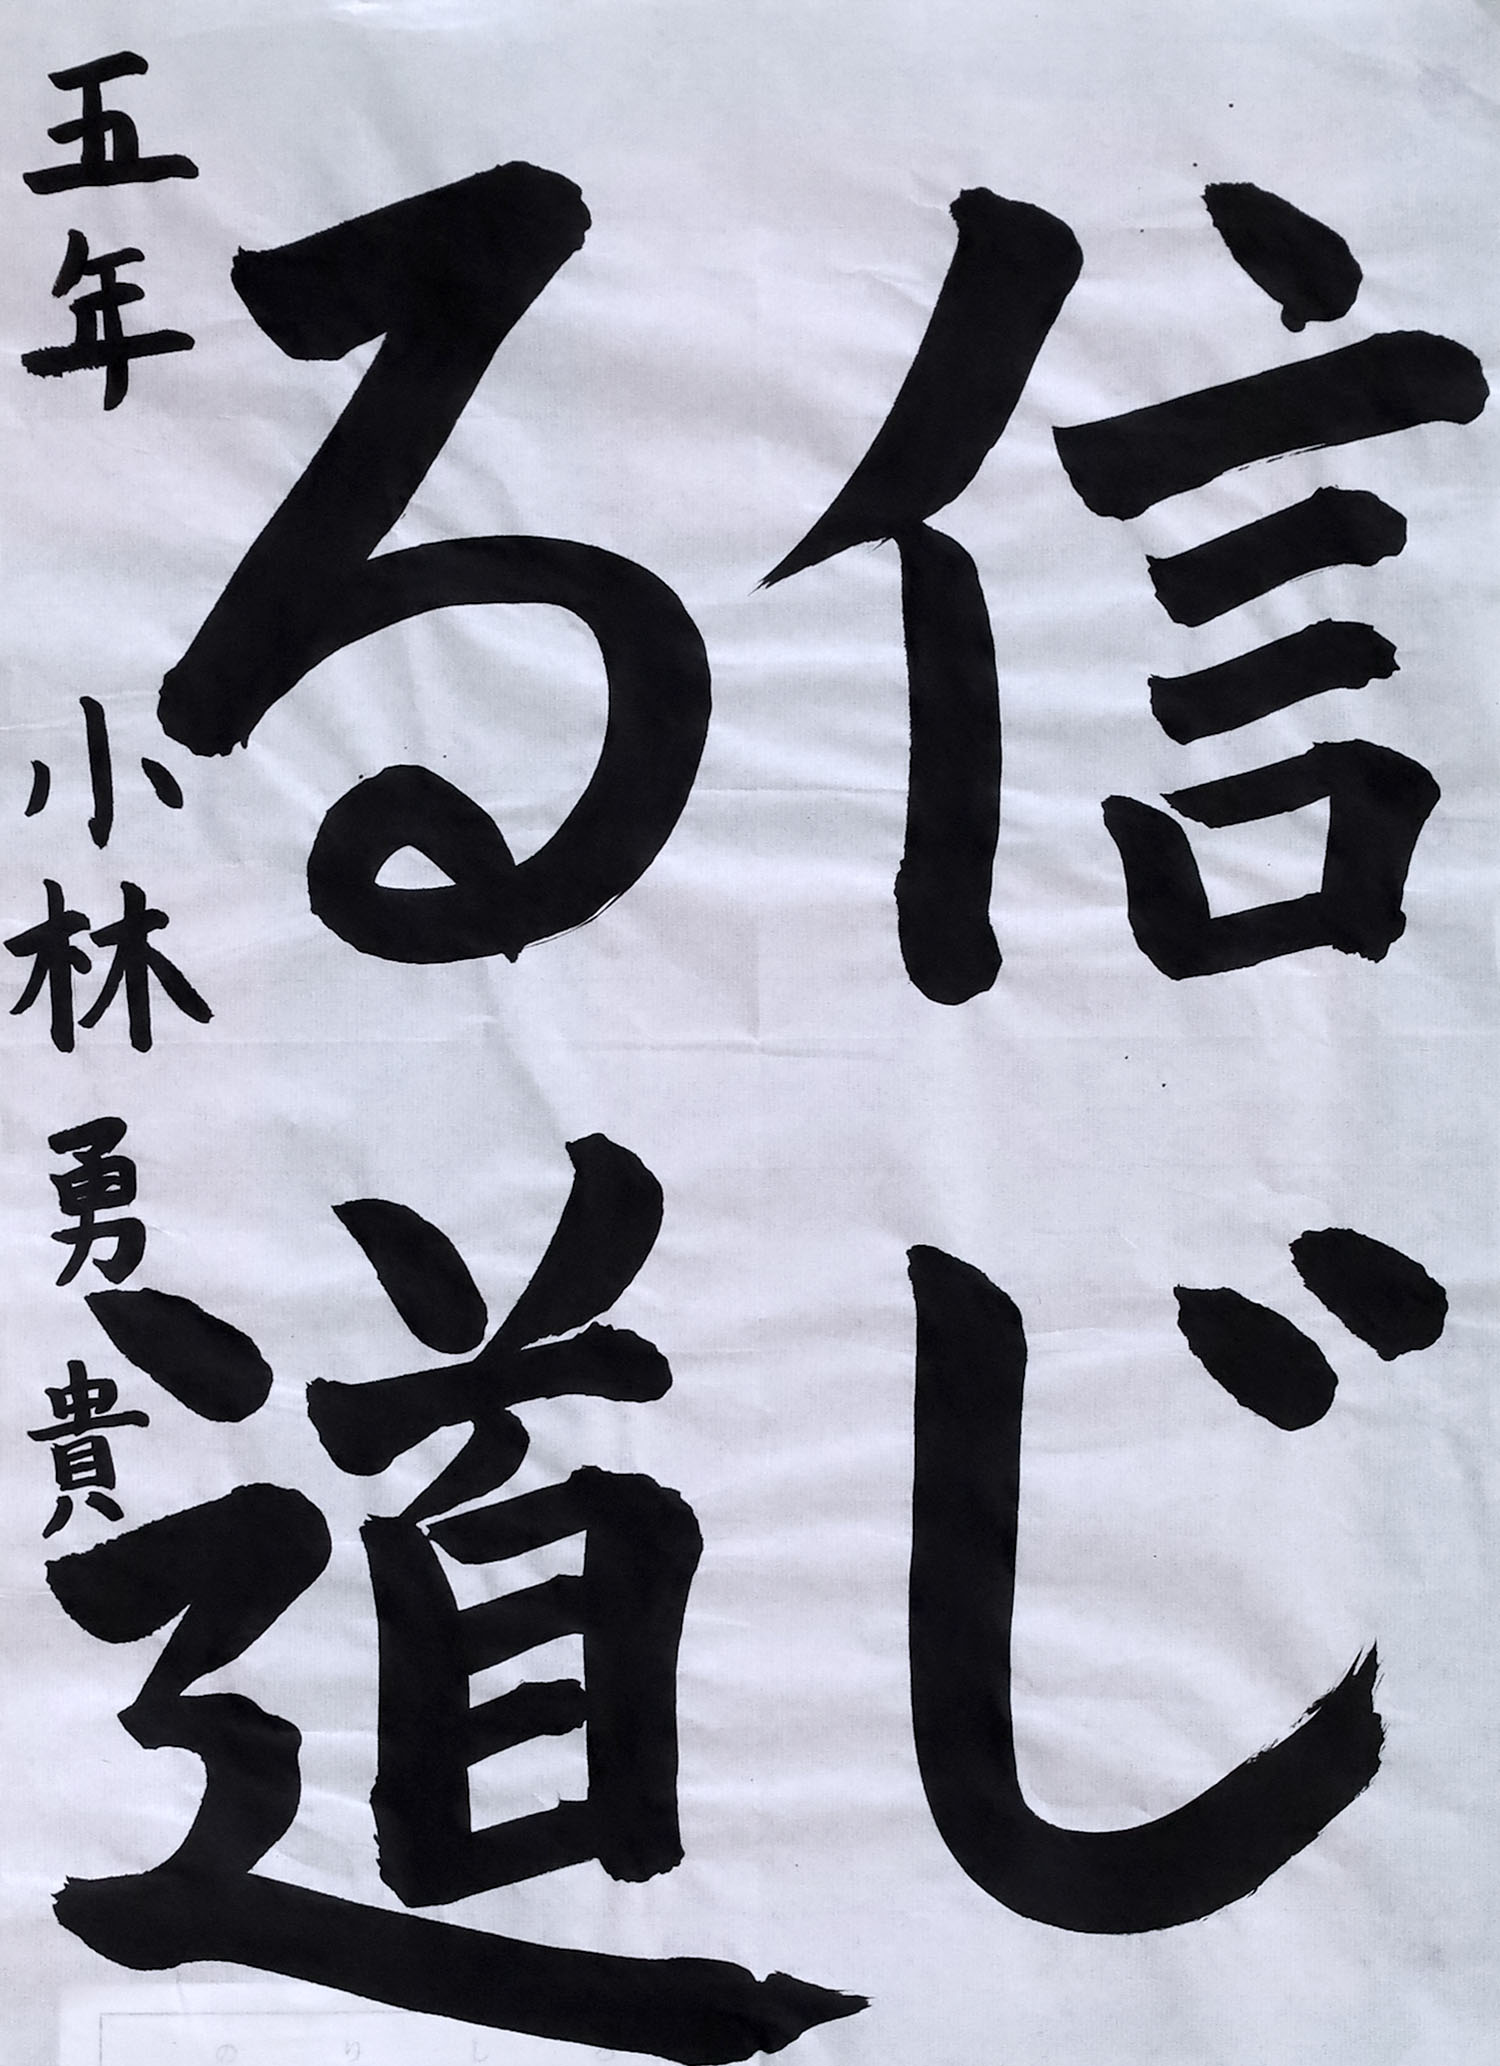 信じ
る道
五年 小林勇貴